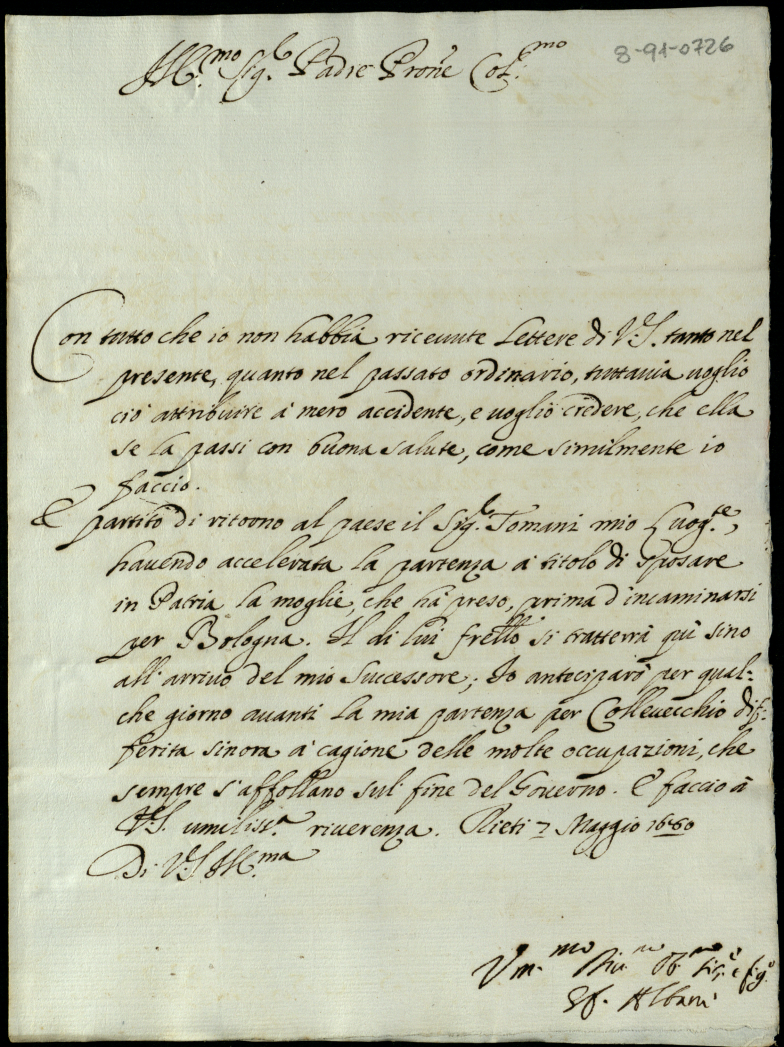 8-91-0726
Ill.mo Sig.r Padre Prone Col.mo
Con tutto che io non habbia riceuute Lettere di V.S. tanto nel
presente, quanto nel passato ordinario, tuttauia uoglio
ciò attribuire à mero accidente, e uoglio credere, che ella
se la passi con buona salute, come similmente io
faccio.
È partito di ritorno al paese il Sig.r Tomani mio Luog.te,
hauendo accelerata la partenza à titolo di sposare
in Patria la moglie, che hà preso, prima d'incaminarsi
per Bologna. Il di lui frello si tratterrà quì sino
all'arriuo del mio Successore; Io anteciparò per qual=
che giorno auanti la mia partenza per Colleuecchio dif=
ferita sinora à cagione delle molte occupazioni, che
sempre s'affollano sul fine del Gouerno. E faccio à
V.S. umiliss.a riuerenza. Rieti 7 Maggio 1680
Di V.S. Ill.ma
Vm.mo
Albani